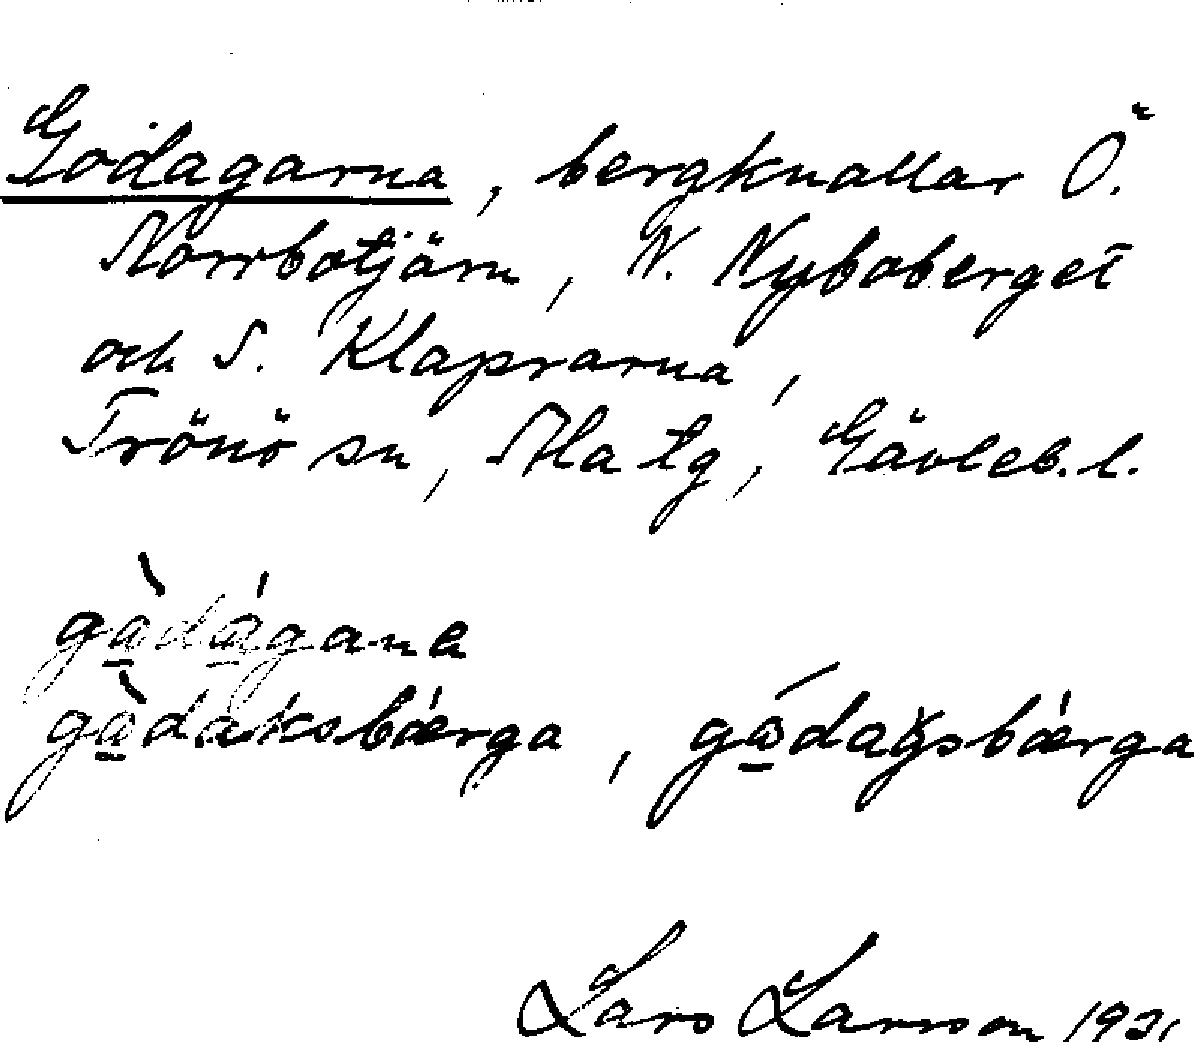 Godagarna, bergknallar Ö.
Norrbotjärn, N. Nyboberget
och S. Klaprarna,
Trönö sn, Ala tg, Gävleb. l.
gàdágana
gàdaksbǽrga, gádagsbǽrga
Lars Larsson